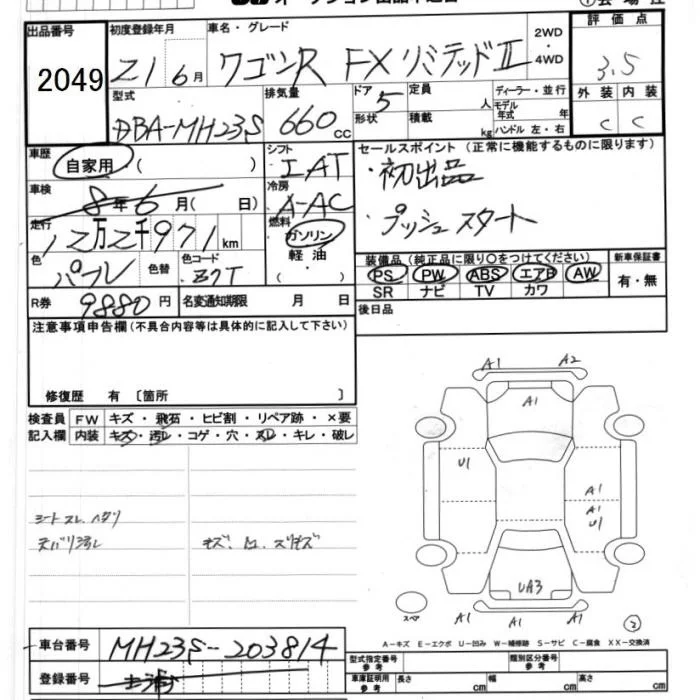 出品番号
2049
初度登録年月
21 6月
車名・グレード
ワゴンR FXリミテッドII
2WD
・
4WD
評価点
3.5
外装 内装
C C
型式
DBA-MH23S
排気量
660cc
ドア 5
形状
定員 人
積載 kg
ディーラー・並行
モデル年式 年
ハンドル 左・右
車歴
自家用 ( )
シフト
I.AT
セールスポイント (正常に機能するものに限ります)
・初出品
・プッシュスタート
車検
8年6月( 日)
冷房
A-AC
走行
12万2千971km
燃料
ガソリン
軽油
( )
色
パープル
色替
色コード
装備品 (純正品に限り○をつけてください)
PS PW ABS エアB AW
SR ナビ TV カワ
新車保証書
有・無
R券
9880円
名変通知期限 月 日
後日品
注意事項申告欄(不具合内容等は具体的に記入して下さい)
修復歴 有 〔箇所 〕
検査員
記入欄
FW キズ・飛石・ヒビ割・リペア跡・×要
内装 キズ・汚レ・コゲ・穴・スレ・キレ・破レ
シートスレ、ヘタリ
天バリ汚レ
A1 A2
A1
U1
A1
A1
U1
UA3
A1 A1 A1
スペア
2
A-キズ E-エクボ U-凹み W-補修跡 S-サビ C-腐食 XX-交換済
車台番号
MH23S-203814
登録番号
土浦
型式指定番号
参考
類別区分番号
参考
車庫証明用
参考
長さ cm
幅 cm
高さ cm